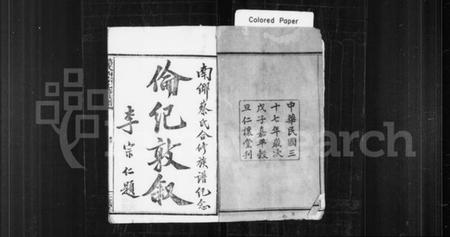 Colored Paper
南鄉蔡氏合修族譜紀念
倫紀敦敘
李宗仁題
中華民國三
十七年歲次
戊子嘉平穀
旦仁讓堂刊